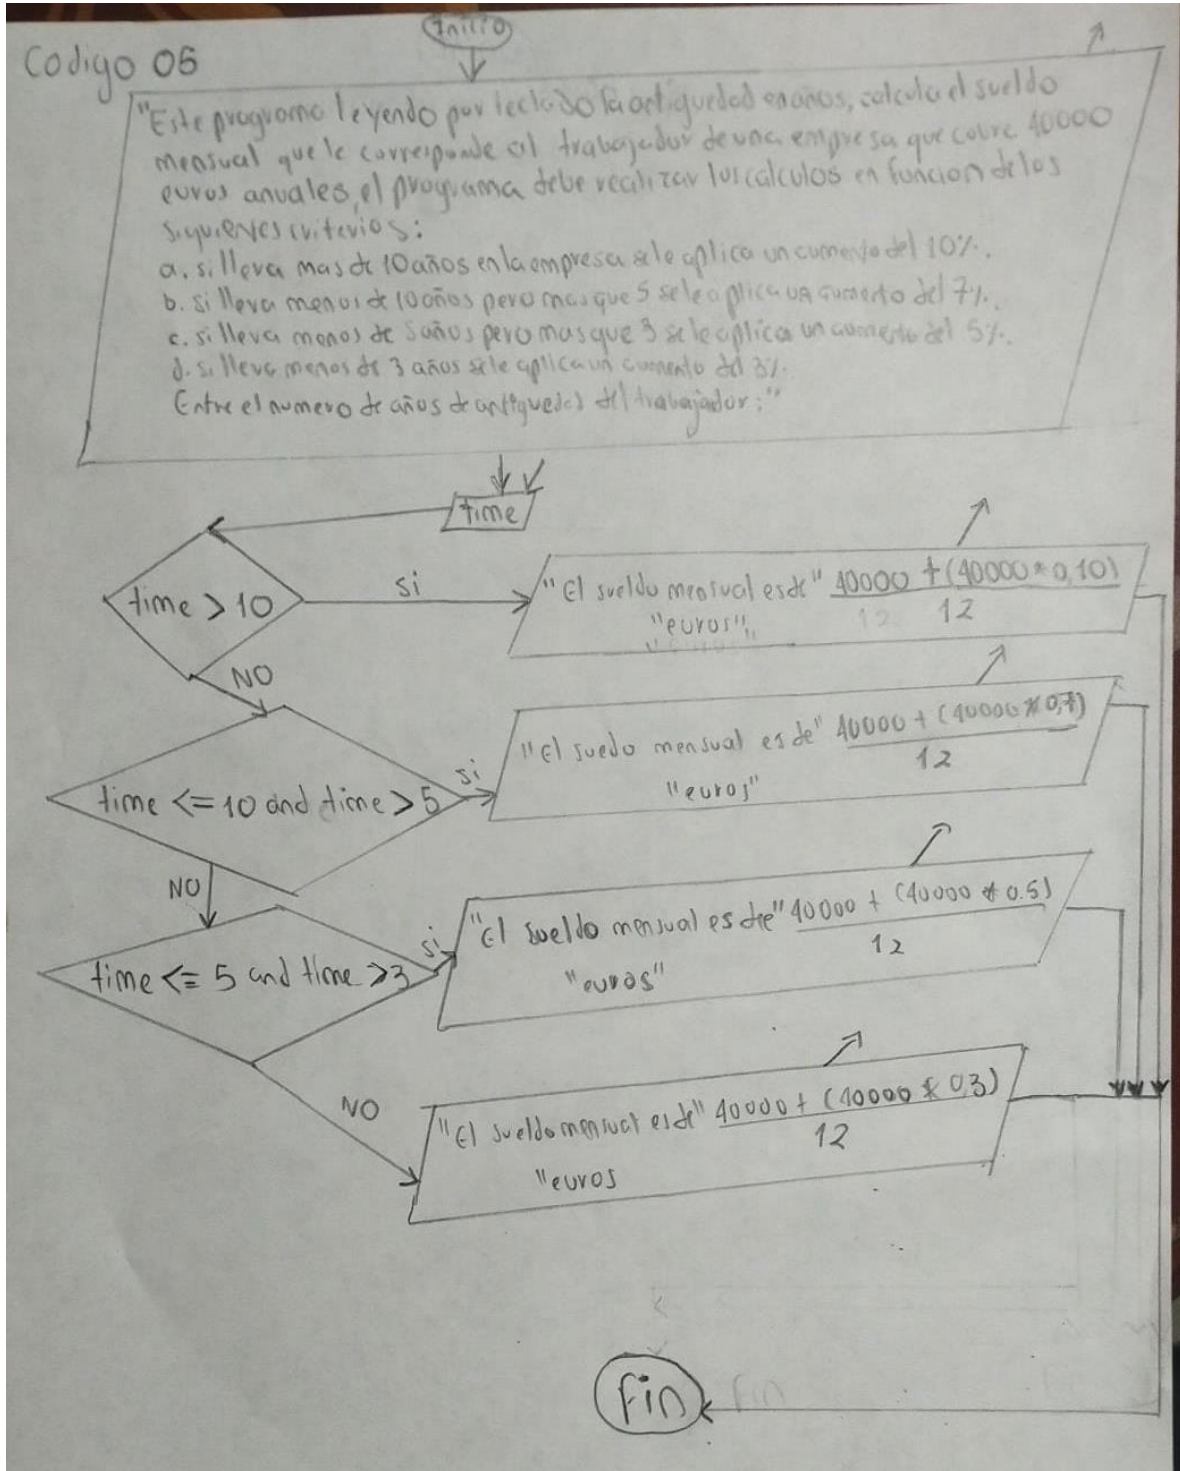 Inicio
Codigo 05
"Este programa leyendo por teclado la antiguedad en años, calcula el sueldo
mensual que le corresponde al trabajador de una empresa que cobre 40000
euros anuales, el programa debe realizar los calculos en funcion de los
siguientes criterios:
a. si lleva mas de 10 años en la empresa se le aplica un aumento del 10%.
b. si lleva menos de 10 años pero mas que 5 se le aplica un aumento del 7%.
c. si lleva menos de 5 años pero mas que 3 se le aplica un aumento del 5%.
d. si lleva menos de 3 años se le aplica un aumento del 3%.
Entre el numero de años de antiguedad del trabajador:"
time
time > 10
si
"El sueldo mensual es de" 40000 + (40000 * 0,10)
12 12
"euros"
NO
time <= 10 and time > 5
si
"El suedo mensual es de" 40000 + (40000 * 0,7)
12
"euros"
NO
time <= 5 and time >3
si
"El sueldo mensual es de" 40000 + (40000 * 0.5)
12
"euros"
NO
"El sueldo mensual es de" 40000 + (40000 * 0,3)
12
"euros
fin fin